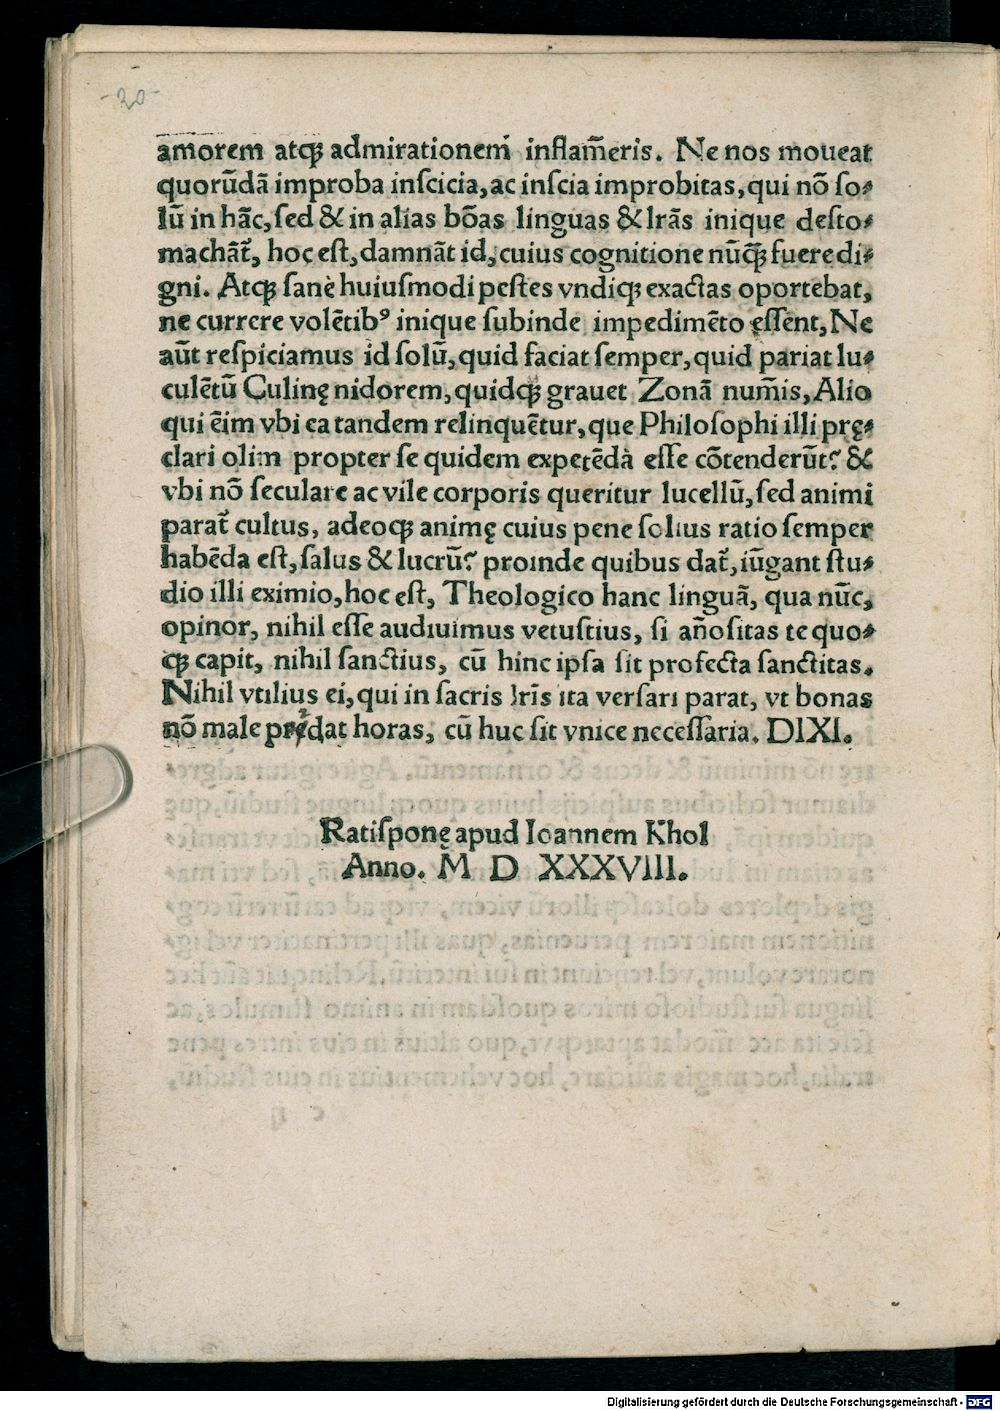 -20-
amorem atqꝫ admirationem inflam̄eris. Ne nos moueat
quorūdā improba inscicia, ac inscia improbitas, qui nō so⸗
lū in hāc, sed & in alias bōas linguas & lr̄as inique desto⸗
machāt᷑, hoc est, damnāt id, cuius cognitione nūqꝫ fuere di⸗
gni. Atqꝫ sanè huiusmodi pestes vndiqꝫ exactas oportebat,
ne currere volētibꝰ inique subinde impedimēto essent, Ne
aūt respiciamus id solū, quid faciat semper, quid pariat lu⸗
culētū Culinę nidorem, quidqꝫ grauet Zonā num̄is, Alio
qui ēim vbi ea tandem relinquētur, que Philosophi illi prę⸗
clari olim propter se quidem expetēda esse cōtenderūt? &
vbi nō seculare ac vile corporis queritur lucellū, sed animi
parat᷑ cultus, adeoqꝫ animę cuius pene solius ratio semper
habēda est, salus & lucrū? proinde quibus dat᷑, iūgant stu⸗
dio illi eximio, hoc est, Theologico hanc linguā, qua nūc,
opinor, nihil esse audiuimus vetustius, si an̄ositas te quo⸗
qꝫ capit, nihil sanctius, cū hinc ipsa sit profecta sanctitas.
Nihil vtilius ei, qui in sacris lr̄is ita versari parat, vt bonas
nō male perdat horas, cū huc sit vnice necessaria. DIXI.
Ratisponę apud Ioannem Khol
Anno. M D XXXVIII.
Digitalisierung gefördert durch die Deutsche Forschungsgemeinschaft - DFG